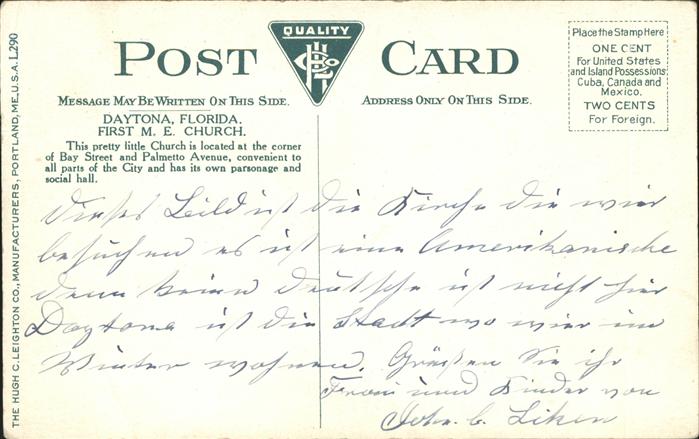 QUALITY
POST CARD
MESSAGE MAY BE WRITTEN ON THIS SIDE.
ADDRESS ONLY ON THIS SIDE.
Place the Stamp Here
ONE CENT
For United States
and Island Possessions
Cuba, Canada and
Mexico.
TWO CENTS
For Foreign.
THE HUGH C. LEIGHTON CO., MANUFACTURERS, PORTLAND, ME., U.S.A. L290
DAYTONA, FLORIDA.
FIRST M. E. CHURCH.
This pretty little Church is located at the corner
of Bay Street and Palmetto Avenue, convenient to
all parts of the City and has its own parsonage and
social hall.
Dieses Bild ist die Kirche die wier
besuchen es ist eine Amerikanische
denn keine Deutsche ist nicht hier
Daytona ist die Stadt wo wier im
Winter wohnen. Grüßen Sie ihr
Frau und Kinder von
John. C. Liken